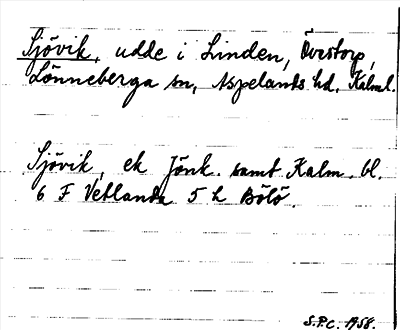 Sjövik, udde i Linden, Överstorp,
Lönneberga sn, Aspelands hd. Kalml.
Sjövik, ek Jönk. samt Kalm. bl.
6 F Vetlanda 5 h Bölö.
S.P.C. 1958.